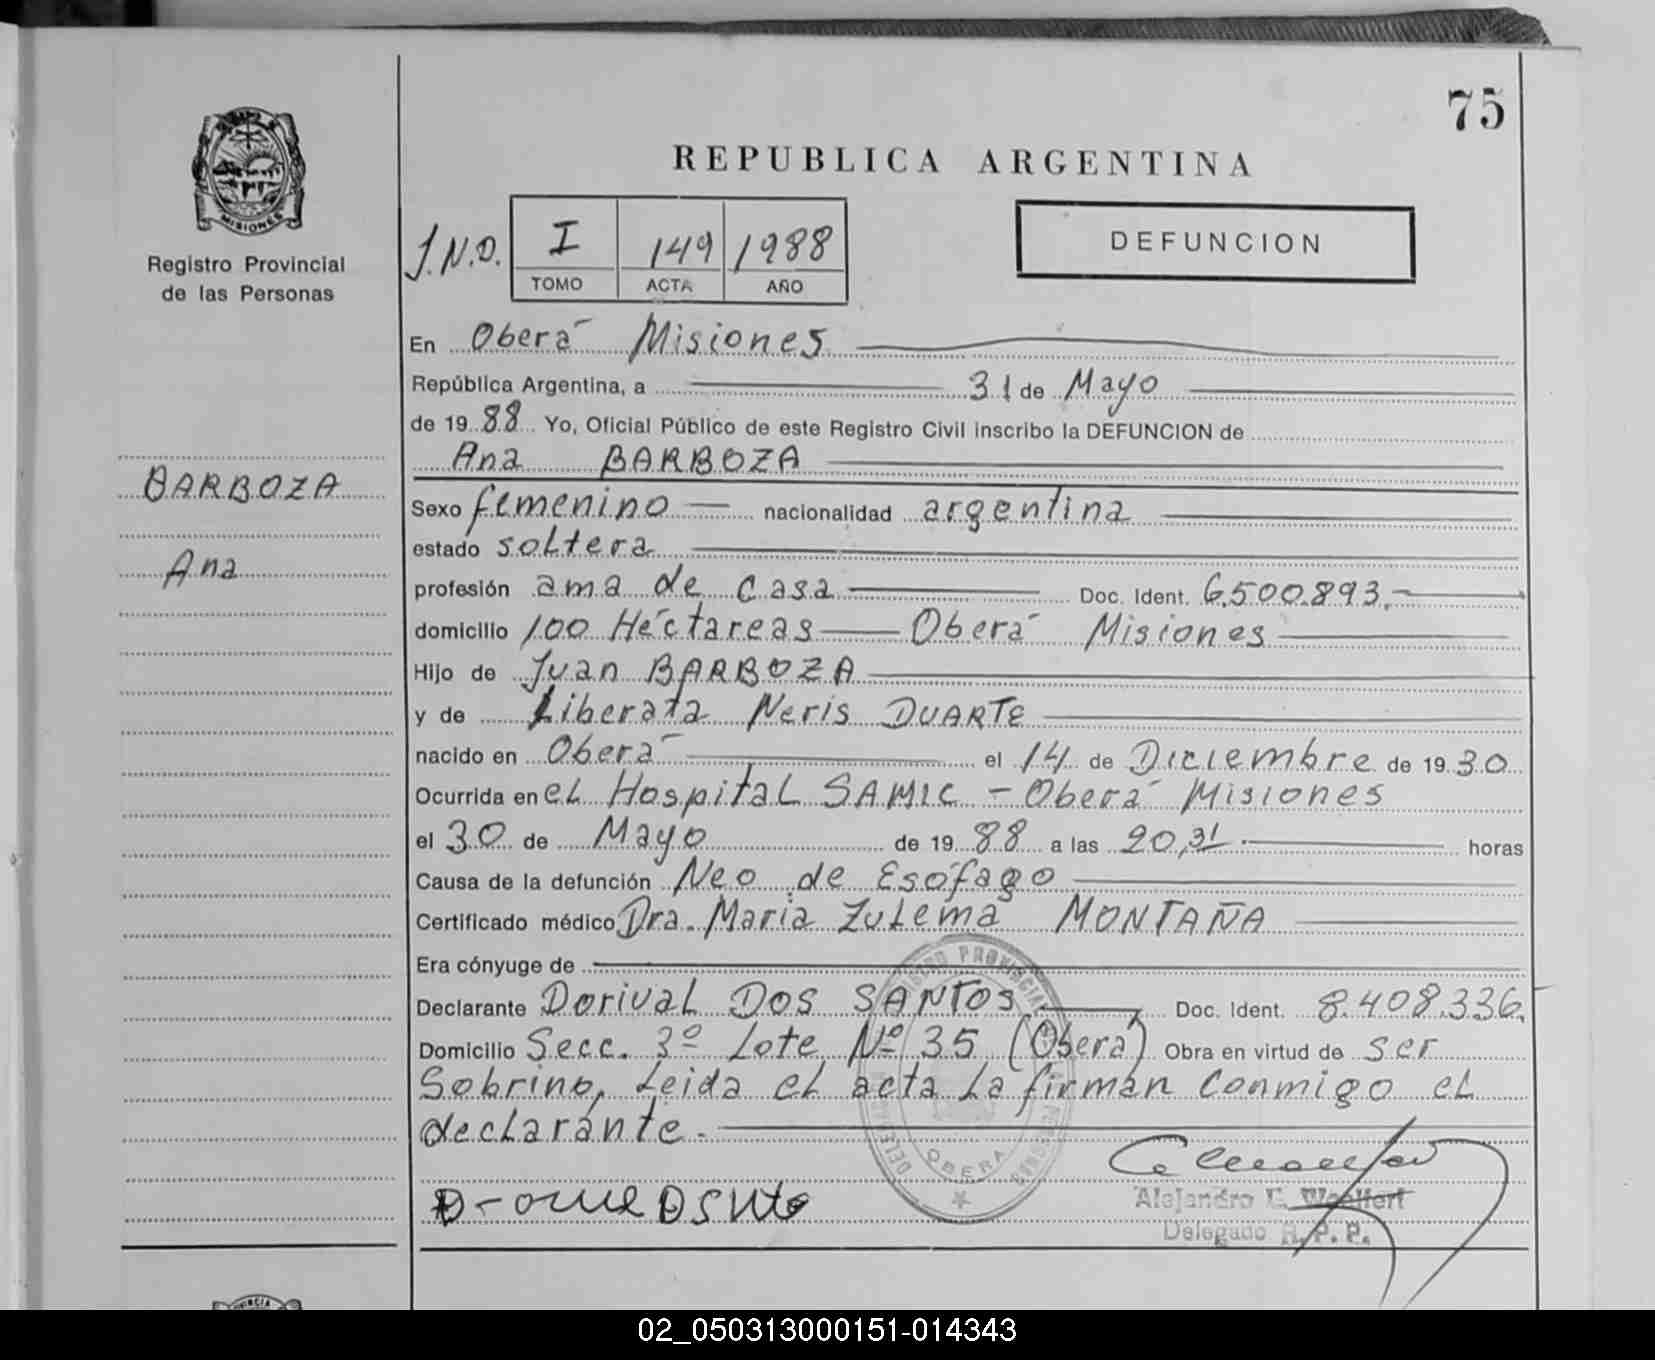 75
REPUBLICA ARGENTINA
MISIONES
Registro Provincial
de las Personas
J.N.O.
I 149 1988
TOMO ACTA AÑO
DEFUNCION
En Oberá Misiones
República Argentina, a 31 de Mayo
de 19 88 Yo, Oficial Público de este Registro Civil inscribo la DEFUNCION de
Ana BARBOZA
BARBOZA
Ana
Sexo femenino nacionalidad argentina
estado soltera
profesión ama de casa Doc. Ident. 6.500.893.
domicilio 100 Héctareas Oberá Misiones
Hijo de Juan BARBOZA
y de Liberata Neris DUARTE
nacido en Oberá el 14 de Diciembre de 19 30
Ocurrida en el Hospital SAMIC - Oberá Misiones
el 30 de Mayo de 19 88 a las 20,31 horas
Causa de la defunción Neo de Esófago
Certificado médico Dra. Maria Zulema MONTAÑA
Era cónyuge de
Declarante Dorival DOS SANTOS Doc. Ident. 8.408.336.
Domicilio Secc. 3º Lote Nº 35 (Oberá) Obra en virtud de ser
Sobrino, Leida el acta la firman conmigo el
declarante.
OBERA
Alejandro
Delegado R. P. P.
02_050313000151-014343